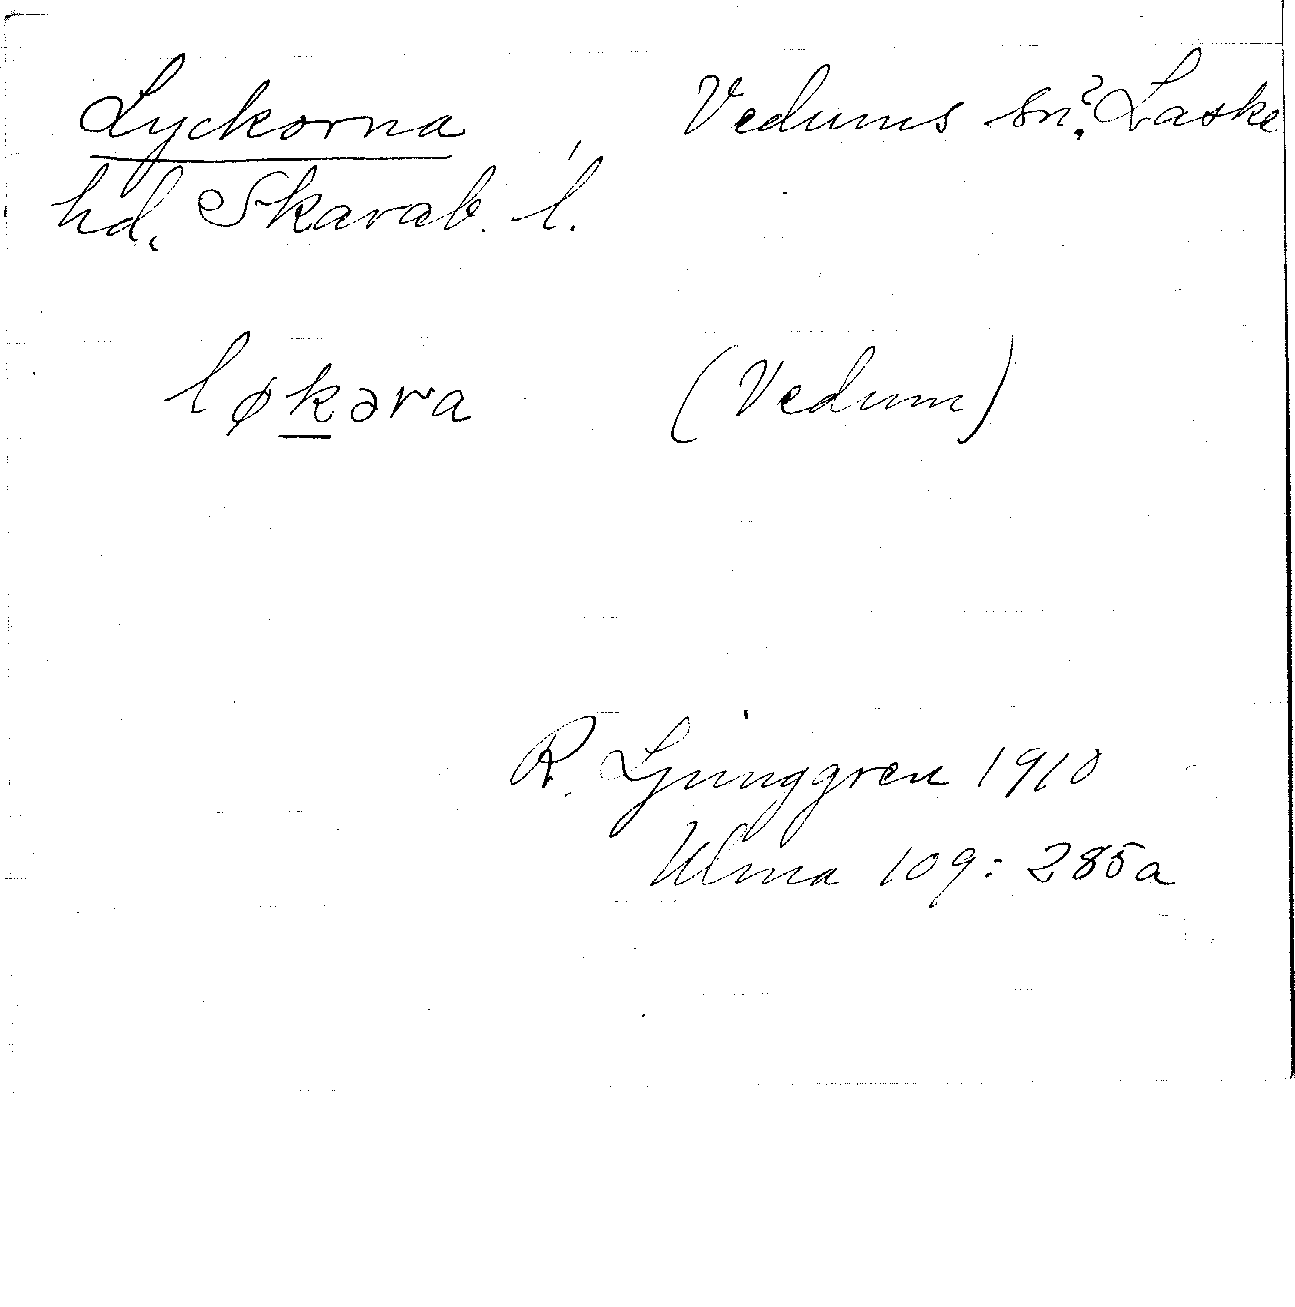 Lyckorna, Vedums sn? Laske
hd. Skarab. l.
løkəra (Vedum)
R. Ljunggren 1910
Ulma 109: 285a